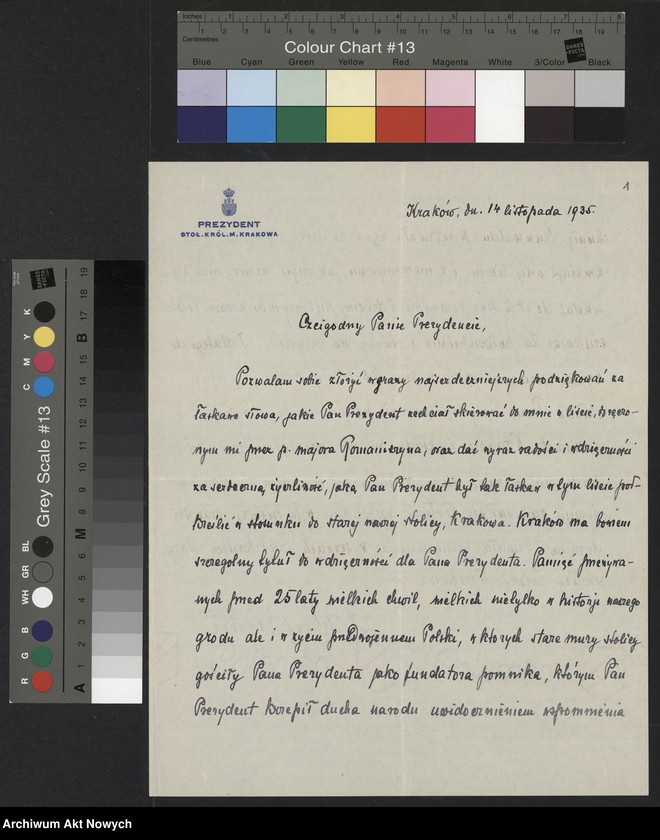 Inches 1 2 3 4 5 6 7 8
1 2 3 4 5 6 7 8 9 10 11 12 13 14 15 16 17 18 19
Centimetres
Colour Chart #13
DANES PICTA
Blue Cyan Green Yellow Red Magenta White 3/Color Black
1
PREZYDENT
STOŁ. KRÓL. M. KRAKOWA
Kraków, dn. 14 listopada 1935.
Czcigodny Panie Prezydencie,
Pozwalam sobie złożyć wyrazy najserdeczniejszych podziękowań za
łaskawe słowa, jakie Pan Prezydent zechciał skierować do mnie w liście, doręczo-
nym mi przez p. majora Romaniszyna, oraz dać wyraz radości i wdzięczności
za serdeczną życzliwość, jaką Pan Prezydent był łaskaw w tym liście pod-
kreślić w stosunku do starej naszej stolicy, Krakowa. Kraków ma bowiem
szczególny tytuł do wdzięczności dla Pana Prezydenta. Pamięć przeżywa-
nych przed 25 laty wielkich chwil, wielkich nietylko w historji naszego
grodu ale i w życiu przedwojennem Polski, w których stare mury stolicy
gościły Pana Prezydenta jako fundatora pomnika, którym Pan
Prezydent krzepił ducha narodu uwidocznieniem wspomnienia
Grey Scale #13
DANES PICTA
C M Y K
R G B WH GR BL
A 1 2 3 4 5 6 M 8 9 10 11 12 13 14 15 B 17 18 19
Archiwum Akt Nowych